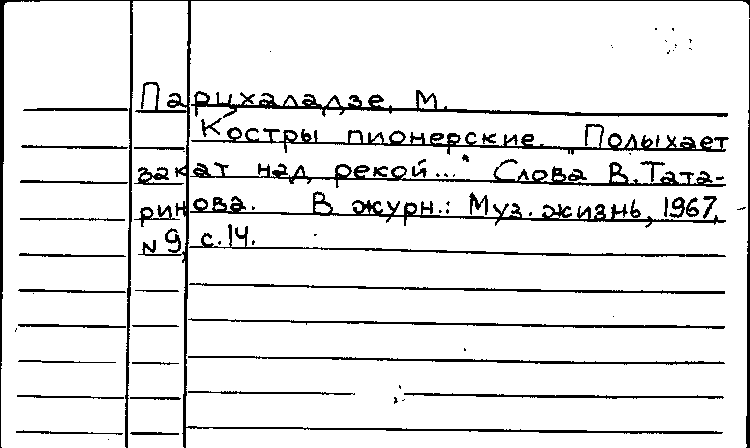 Парцхаладзе, М.
Костры пионерские. "Полыхает
закат над рекой..." Слова В. Тата-
ринова. В журн.: Муз. жизнь, 1967,
N 9, с. 14.